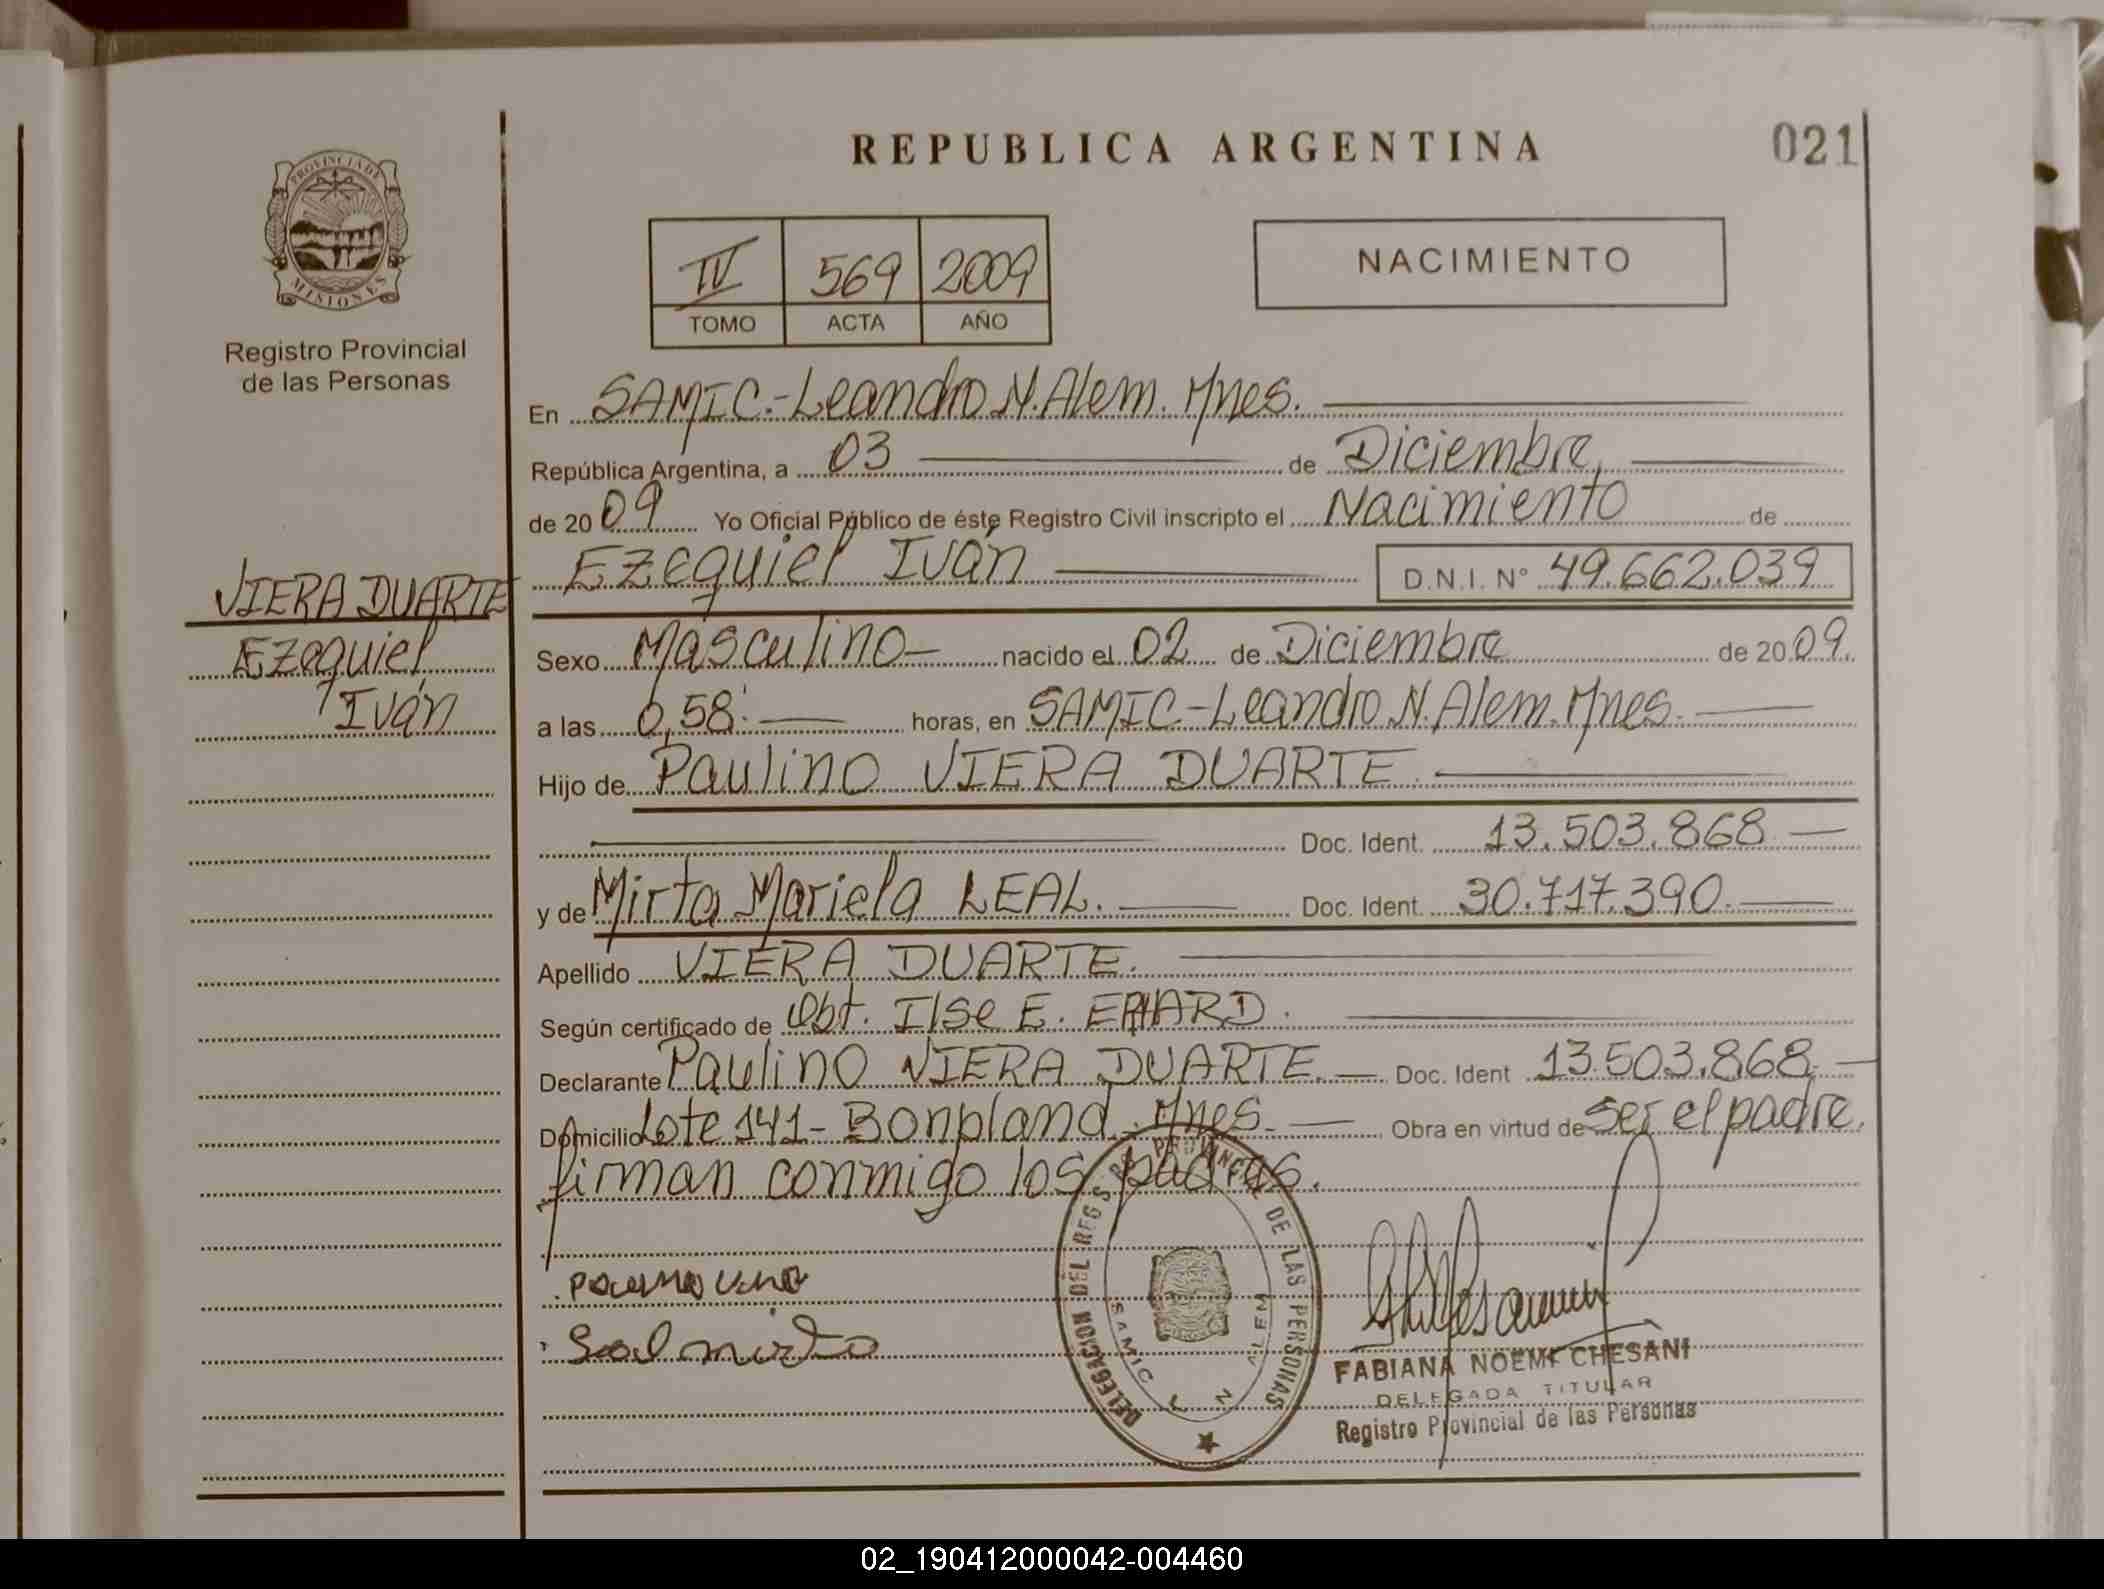 REPUBLICA ARGENTINA
021
PROVINCIA DE MISIONES
Registro Provincial
de las Personas
IV 569 2009
TOMO ACTA AÑO
NACIMIENTO
En SAMIC.-Leandro N. Alem. Mnes.
República Argentina, a 03 de Diciembre,
de 2009 Yo Oficial Público de éste Registro Civil inscripto el Nacimiento de
Ezequiel Iván D.N.I. N° 49.662.039
VIERA DUARTE
Ezequiel
Iván
Sexo Masculino nacido el 02 de Diciembre de 2009.
a las 0,58' horas, en SAMIC-Leandro N. Alem. Mnes.
Hijo de Paulino VIERA DUARTE.
Doc. Ident. 13.503.868
y de Mirta Mariela LEAL. Doc. Ident. 30.717.390.
Apellido VIERA DUARTE.
Según certificado de Obt. Ilse E. ERHARD.
Declarante Paulino VIERA DUARTE. Doc. Ident 13.503.868
Domicilio Lote 141- Bonpland. Mnes. Obra en virtud de ser el padre.
firman conmigo los padres.
DELEGACION DEL REGIS PROVINCIAL DE LAS PERSONAS
SAMIC L N ALEM
FABIANA NOEMI CHESANI
DELEGADA TITULAR
Registro Provincial de las Personas
02_190412000042-004460